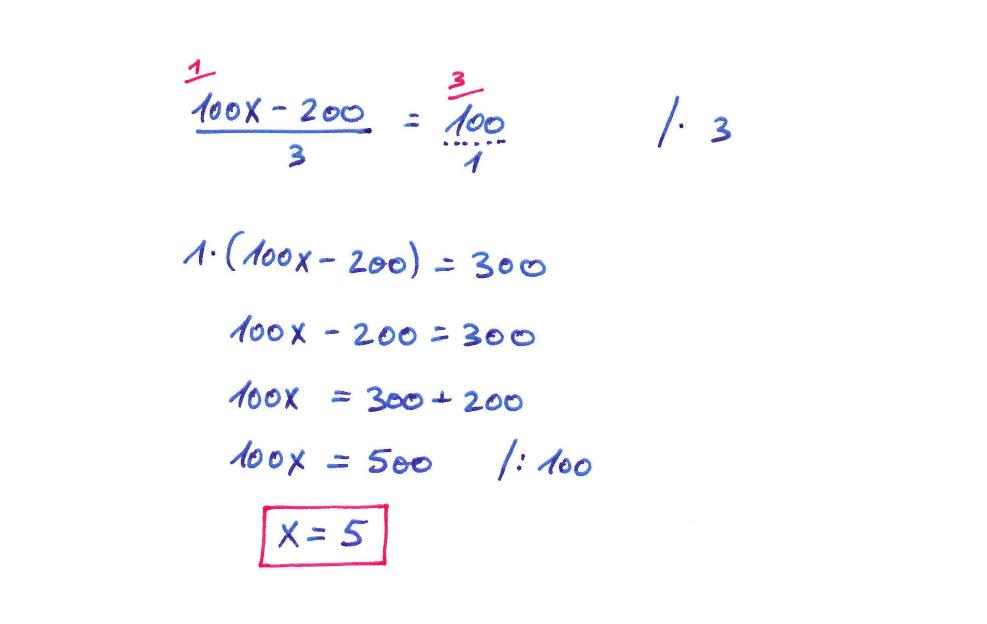 1 3
100x - 200 = 100 /· 3
3 1
1·(100x - 200) = 300
100x - 200 = 300
100x = 300 + 200
100x = 500 /: 100
x = 5